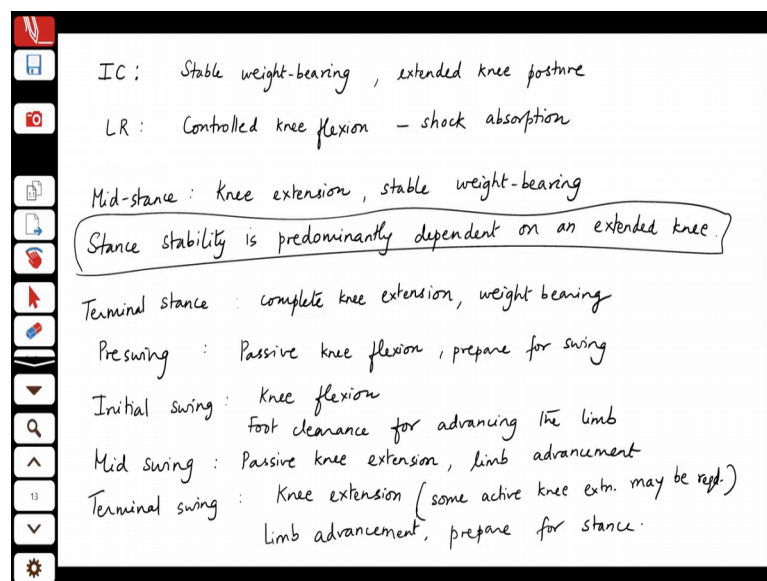 IC: Stable weight-bearing, extended knee posture
LR: Controlled knee flexion – shock absorption
Mid-stance: Knee extension, stable weight-bearing
Stance stability is predominantly dependent on an extended knee.
Terminal stance : complete knee extension, weight bearing
Preswing : Passive knee flexion, prepare for swing
Initial swing : Knee flexion
Foot clearance for advancing the limb
Mid swing : Passive knee extension, limb advancement
Terminal swing : Knee extension (some active knee extn. may be reqd.)
Limb advancement, prepare for stance.
13